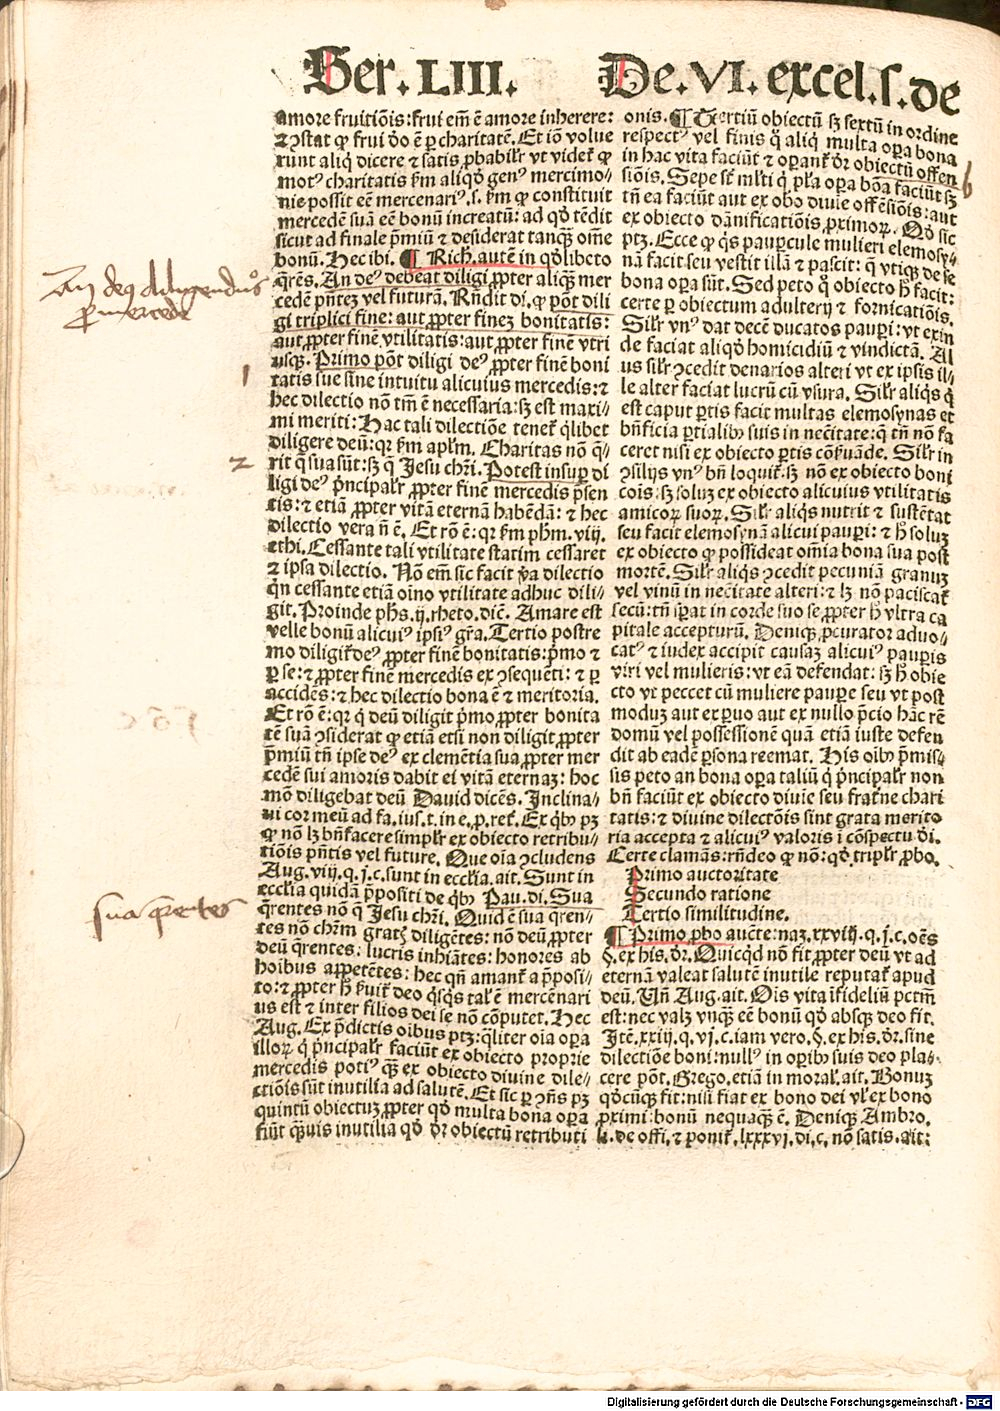 Ser. LIII. De. VI. excel. s. de
amore fruitiōis: frui em̄ ē amore inherere:
⁊ ꝯstat ꝙ frui dō ē ꝑ charitatē. Et iō volue
runt aliq̇ dicere ⁊ satis ꝓbabilr̄ vt videt̄ ꝙ
motꝰ charitatis ẜm aliqḋ genꝰ mercimo-/
nie possit eē mercenariꝰ. s. ẜm ꝙ constituit
mercedē suā eē bonū increatū: ad qḋ tēdit
sicut ad finale p̄miū ⁊ desiderat tanqꝫ om̄e
bonū. Hec ibi. ¶ Rich. autē in qḋlibeto
q̄res. An deꝰ debeat diligi ꝓpter aliqꝫ mer
cedē pn̄tez vel futurā. Rn̄dit di. ꝙ pōt dili
gi triplici fine: aut ꝓpter finez bonitatis:
aut ꝓpter finē vtilitatis: aut ꝓpter finē vtri
usqꝫ. Primo pōt diligi deꝰ ꝓpter finē boni
tatis sue sine intuitu alicuius mercedis: ⁊
hec dilectio nō tm̄ ē necessaria: sꝫ est maxi-/
mi meriti: Hac tali dilectiōe tenet̄ q̇libet
diligere deū: qꝛ ẜm aplm̄. Charitas nō q̄-/
rit q̄ sua sūt: sꝫ q̄ Jesu chr̄i. Potest insuꝑ di
ligi deꝰ pͥncipalr̄ ꝓpter finē mercedis p̄sen
tis: ⁊ etiā ꝓpter vitā eternā habēdā: ⁊ hec
dilectio vera ñ ē. Et rō ē: qꝛ ẜm phm̄. viij.
ethi. Cessante tali vtilitate statim cessaret
⁊ ipsa dilectio. Nō em̄ sic facit ṽa dilectio
qͥn cessante etiā oīno vtilitate adhuc dili-/
git. Proinde phs̄. ij. rheto. dic̄. Amare est
velle bonū alicuiꝰ ipsiꝰ gr̄a. Tertio postre
mo diligit̄ deꝰ ꝓpter finē bonitatis: pͥmo ⁊
ꝑ se: ⁊ ꝓpter finē mercedis ex ꝯsequēti: ⁊ ꝑ
accidēs: ⁊ hec dilectio bona ē ⁊ meritoria.
Et rō ē: qꝛ q̇ deū diligit pͥmo ꝓpter bonita
tē suā ꝯsiderat ꝙ etiā etsi non diligit ꝓpter
p̄miū tn̄ ipse deꝰ ex clemētia sua ꝓpter mer
cedē sui amoris dabit ei vitā eternaz: hoc
mō diligebat deū David dicēs. Inclina-/
ui cor meū ad fa. ius. t. in e. p. ret̄. Ex qͥbꝫ pꝫ
ꝙ nō lꝫ bn̄facere simplr̄ ex obiecto retribu-/
tiōis pn̄tis vel future. Que oīa ꝯcludens
Aug. viij. q. j. c. sunt in eccl̄ia. ait. Sunt in
eccl̄ia quidā p̄positi de qͥbꝫ Pau. di. Sua
q̄rentes nō q̄ Jesu chr̄i. Quid ē sua q̄ren-/
tes nō chr̄m gratis diligētes: nō deū ꝓpter
deū q̄rentes: lucris inhiātes: honores ab
hoībus appetētes: hec qn̄ amant̄ a p̄posi-/
to: ⁊ ꝓpter h̄ ẜuit̄ deo q̇sqꝫ talꝭ ē mercēnari
us est ⁊ inter filios dei se nō cōputet. Hec
Aug. Ex p̄dictis oībus ptꝫ: qͣliter oīa oꝑa
illoꝝ q̇ pͥncipalr̄ faciūt ex obiecto proprie
mercedis potiꝰ qꝫ ex obiecto diuine dile-/
ctiōis sūt inutilia ad salutē. Et sic ꝑ ꝯn̄s pꝫ
quintū obiectuꝫ ꝓpter qḋ multa bona oꝑa
fiūt qꝫuis inutilia qḋ dr̄ obiectū retributi
onis. ¶ Tertiū obiectū sꝫ sextū in ordine
respectꝰ vel finis q̄ aliq̇ multa oꝑa bona
in hac vita faciūt ⁊ operant̄ dr̄ obiectū offen
siōis. Sepe st̄ ml̄ti q̇ pl̄a oꝑa bōa faciūt sꝫ
tn̄ ea faciūt aut ex obō diuīe offēsiōis: aut
ex obiecto dānificatiōis ꝓximoꝝ. Qḋ sic
ptꝫ. Ecce q̇ qͥs paupercule mulieri elemosy-/
nā facit seu vestit illā ⁊ pascit: q̄ vtiqꝫ de se
bona oꝑa sūt. Sed peto q̄ obiecto h̄ facit:
certe ꝑ obiectum adulterij ⁊ fornicatiōis.
Silr̄ vnꝰ dat decē ducatos pauꝑi: vt exin
de faciat aliqḋ homicidiū ⁊ vindictā. Al
ius silr̄ ꝯcedit denarios alteri vt ex ipsis il-/
le alter faciat lucrū cū vsura. Silr̄ aliqͥs q̇
est caput ꝑtis facit multas elemosynas et
bn̄ficia ꝑtialibꝫ suis in nec̄itate: q̄ tn̄ nō fa
ceret nisi ex obiecto ꝑtis cōẜuande. Silr̄ in
ꝯsilijs vnꝰ bn̄ loquit̄. sꝫ nō ex obiecto boni
cōis: sꝫ soluꝫ ex obiecto alicuius vtilitatis
amicoꝝ suoꝝ. Silr̄ aliqͥs nutrit ⁊ sustētat
seu facit elemosynā alicui pauꝑi: ⁊ h̄ soluꝫ
ex obiecto ꝙ possideat om̄ia bona sua post
mortē. Silr̄ aliqͥs ꝯcedit pecuniā granuꝫ
vel vinū in nec̄itate alteri: ⁊ lꝫ nō paciscat̄
secū: tn̄ sꝑat in corde suo se ꝓpter h̄ vltra ca
pitale accepturū. Deniqꝫ ꝓcurator aduo-/
catꝰ ⁊ iudex accipit causaꝫ alicuiꝰ pauꝑis
viri vel mulieris: vt eā defendat: sꝫ h̄ obie
cto vt peccet cū muliere pauꝑe seu vt post
moduꝫ aut ex ꝑuo aut ex nullo p̄cio hāc rē
domū vel possessionē quā etiā iuste defen
dit ab eadē ꝑsona reemat. His oībꝫ p̄mis-/
sis peto an bona oꝑa taliū q̇ pͥncipalr̄ non
bn̄ faciūt ex obiecto diuīe seu frat̄ne chari
tatis: ⁊ diuine dilectōis sint grata merito
ria accepta ⁊ alicuiꝰ valoris ī cōspectu dī.
Certe clamās: rn̄deo ꝙ nō: qḋ triplr̄ ꝓbo.
Primo auctoritate
Secundo ratione
Tertio similitudine.
¶ Primo ꝓbo aucte: naꝫ. xxviij. q. j. c. oēs
§. ex his. dr̄. Quicqͥd nō fit ꝓpter deū vt ad
eternā valeat salutē inutile reputat̄ apud
deū. Vn̄ Aug. ait. Ois vita īfideliū pctm̄
est: nec valꝫ vnqꝫ eē bonū qḋ absqꝫ deo fit.
Itē. xxiij. q. vj. c. iam vero. §. ex his. dr̄. sine
dilectiōe boni: nullꝰ in oꝑibꝫ suis deo pla-
cere pōt. Grego. etiā in moral̄. ait. Bonuꝫ
qḋcūqꝫ fit: nisi fiat ex bono dei vl̄ ex bono
ꝓximi: bonū nequaqꝫ ē. Deniqꝫ Ambro.
li. de offi. ⁊ ponit̄. lxxxvj. di. c. nō satis. ait:
An deꝰ diligendus
ꝓ mercede
1
2
sua q̄rentes
6
Digitalisierung gefördert durch die Deutsche Forschungsgemeinschaft - DFG